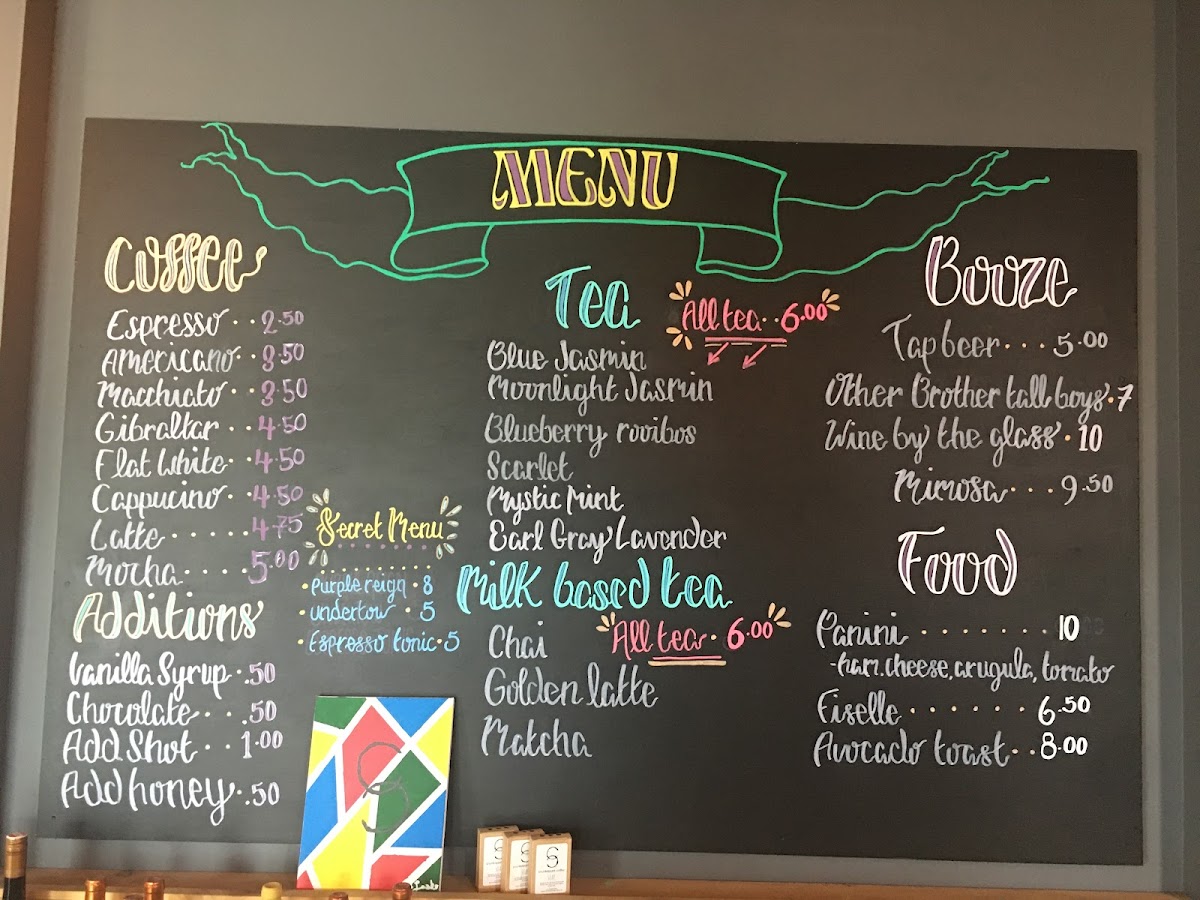 MENU
Coffee
Espresso .. 2.50
Americano .. 3.50
Macchiato .. 3.50
Gibraltar .. 4.50
Flat White .. 4.50
Cappucino .. 4.50
Latte ...... 4.75
Mocha .... 5.00
Additions
Vanilla Syrup .50
Chocolate .. .50
Add Shot .. 1.00
Add honey .50
Secret Menu
• Purple reign • 8
• undertow • 5
• Espresso tonic • 5
Tea
All tea .. 6.00
Blue Jasmin
Moonlight Jasmin
Blueberry rooibos
Scarlet
Mystic Mint
Earl Gray Lavender
Milk based tea
All tea . 6.00
Chai
Golden latte
Matcha
Booze
Tap beer ... 5.00
Other Brother tall boys . 7
Wine by the glass . 10
Mimosa ... 9.50
Food
Panini ....... 10
-ham, cheese, arugula, tomato
Fiselle ...... 6.50
Avocado toast .. 8.00